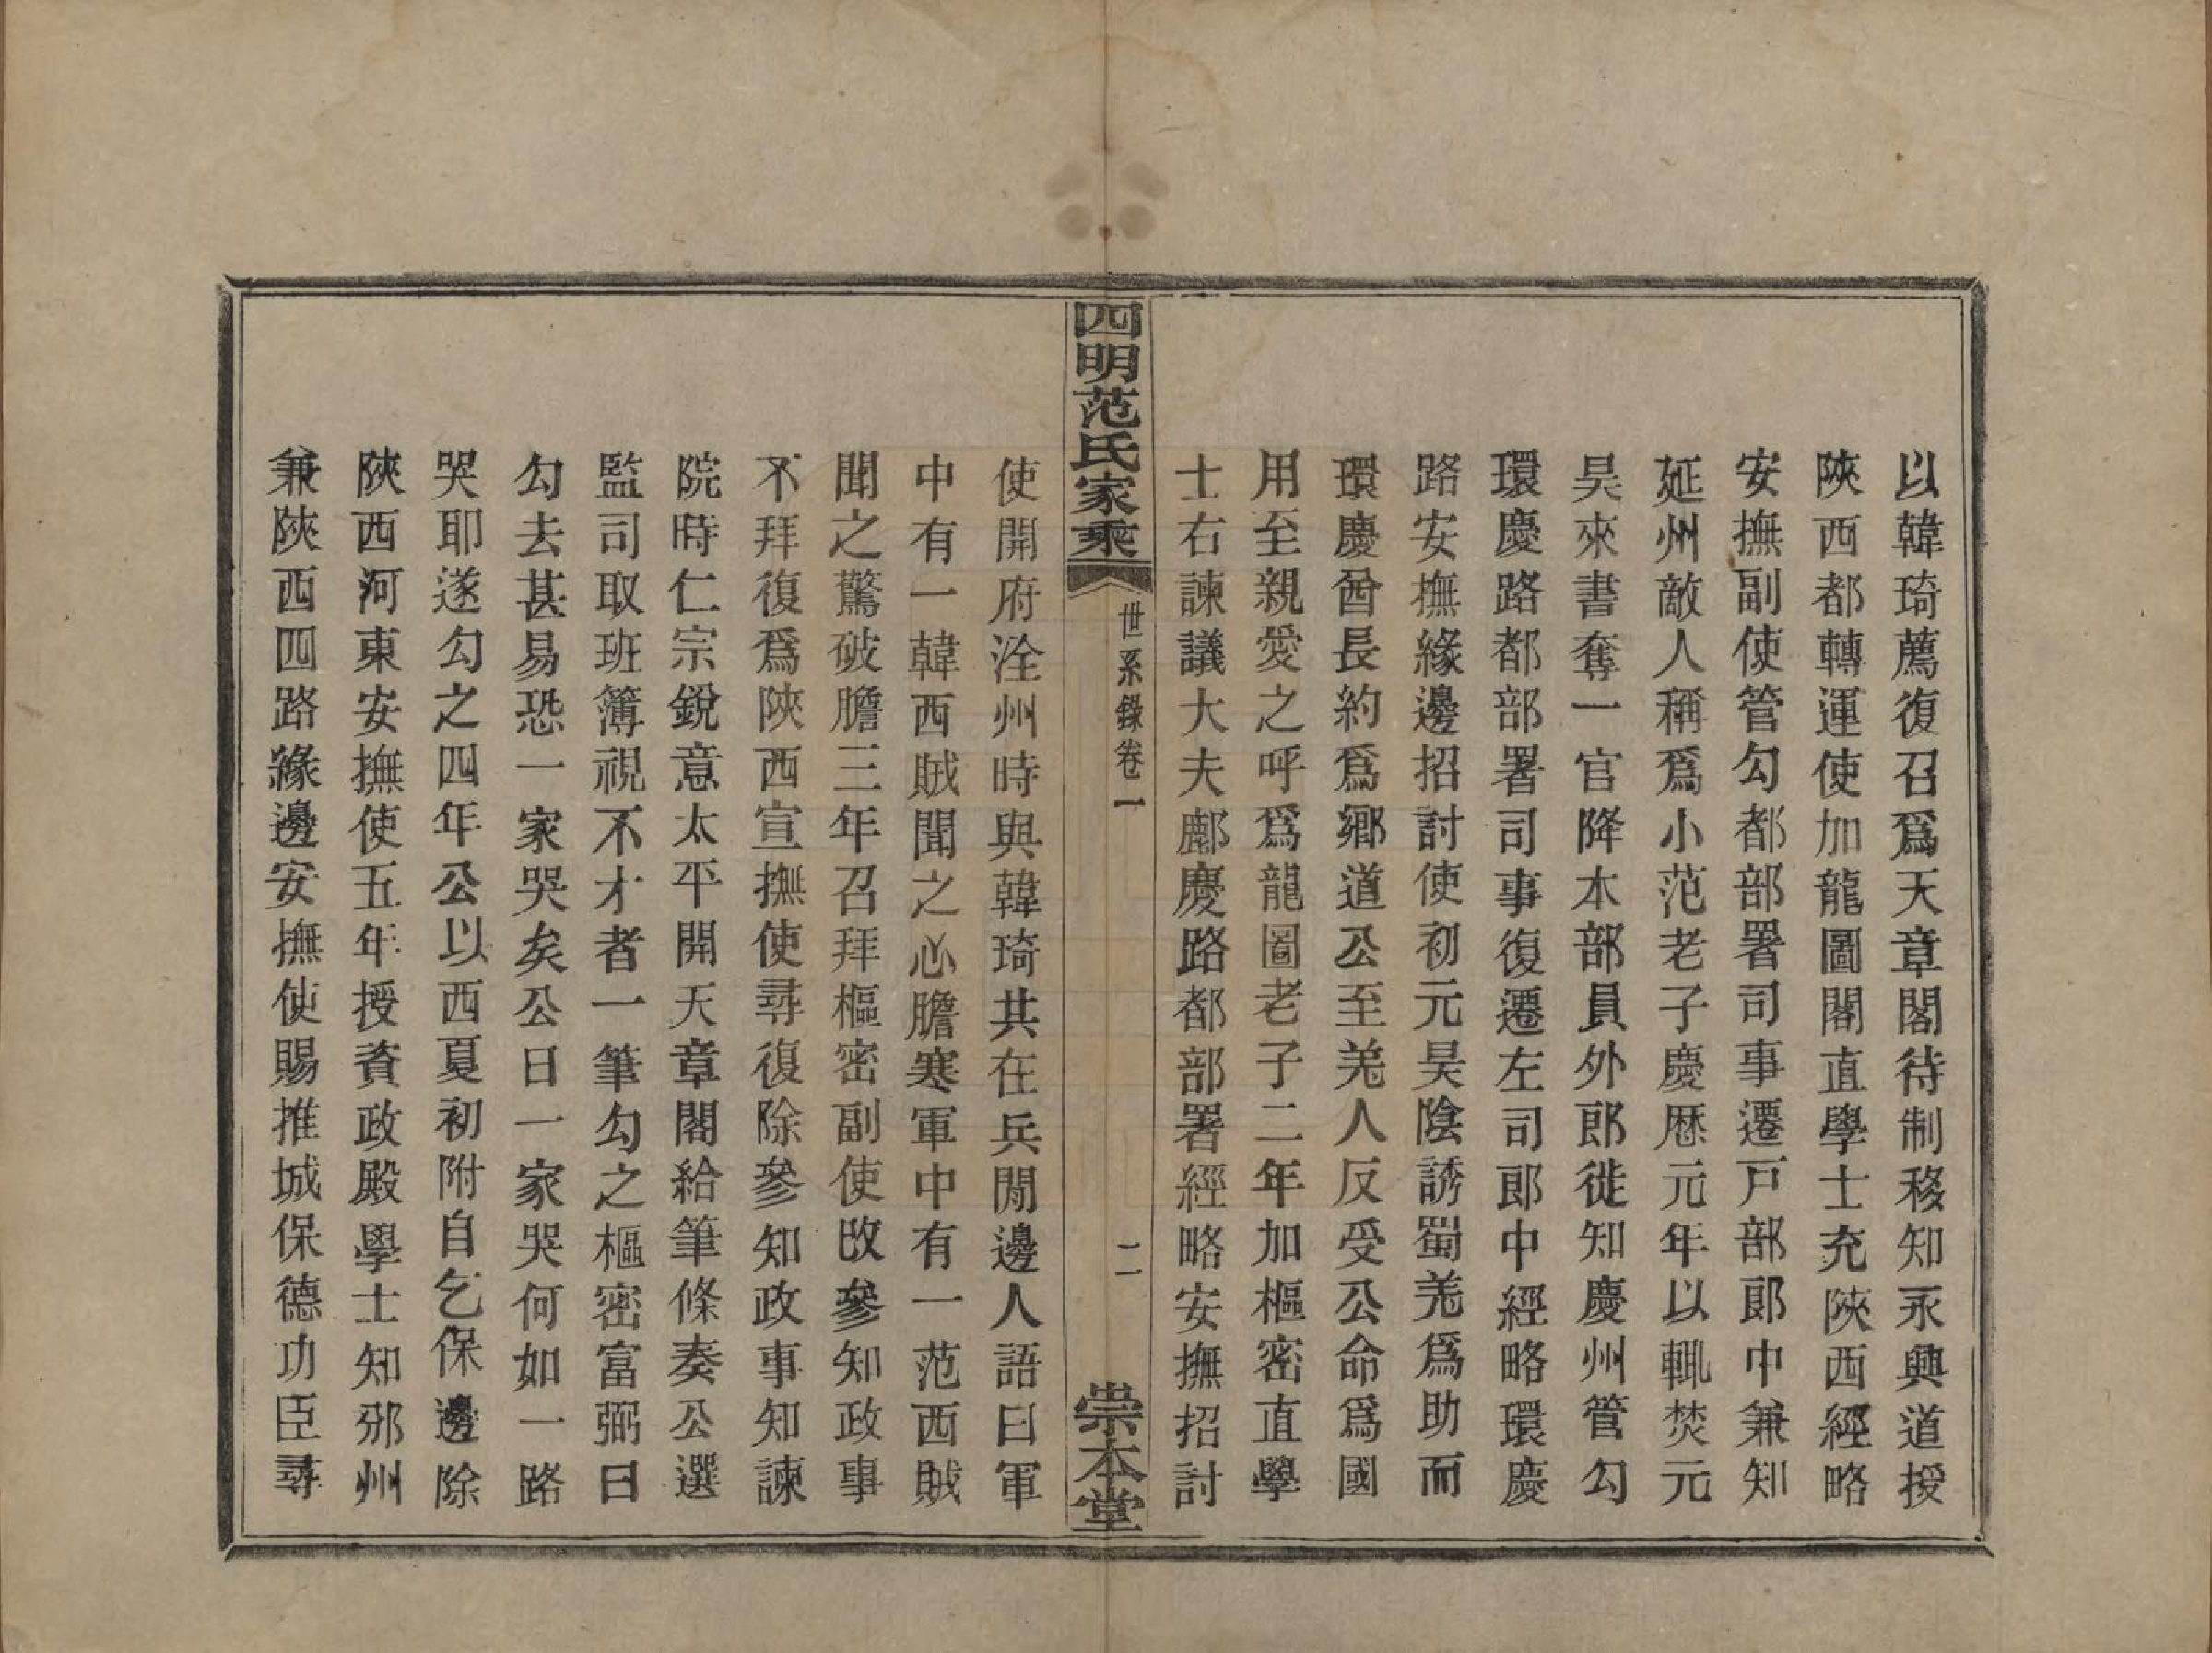 以韓琦薦復召爲天章閣待制移知永興道授
陝西都轉運使加龍圖閣直學士充陝西經略
安撫副使管勾都部署司事遷戸部郎中兼知
延州敵人稱爲小范老子慶厯元年以輒焚元
昊來書奪一官降本部員外郎徙知慶州管勾
環慶路都部署司事復遷左司郎中經略環慶
路安撫緣邊招討使初元昊陰誘蜀羌爲助而
環慶酋長約爲鄉道公至羌人反受公命爲國
用至親愛之呼爲龍圖老子二年加樞密直學
士右諫議大夫鄜慶路都部署經略安撫招討
四明范氏家乘
世系錄卷一
二
崇本堂
使開府涇州時與韓琦共在兵閒邊人語曰軍
中有一韓西賊聞之心膽寒軍中有一范西賊
聞之驚破膽三年召拜樞密副使改參知政事
不拜復爲陝西宣撫使尋復除參知政事知諫
院時仁宗銳意太平開天章閣給筆條奏公選
監司取班簿視不才者一筆勾之樞密富弼曰
勾去甚易恐一家哭矣公曰一家哭何如一路
哭耶遂勾之四年公以西夏初附自乞保邊除
陝西河東安撫使五年授資政殿學士知邠州
兼陝西四路緣邊安撫使賜推城保德功臣尋